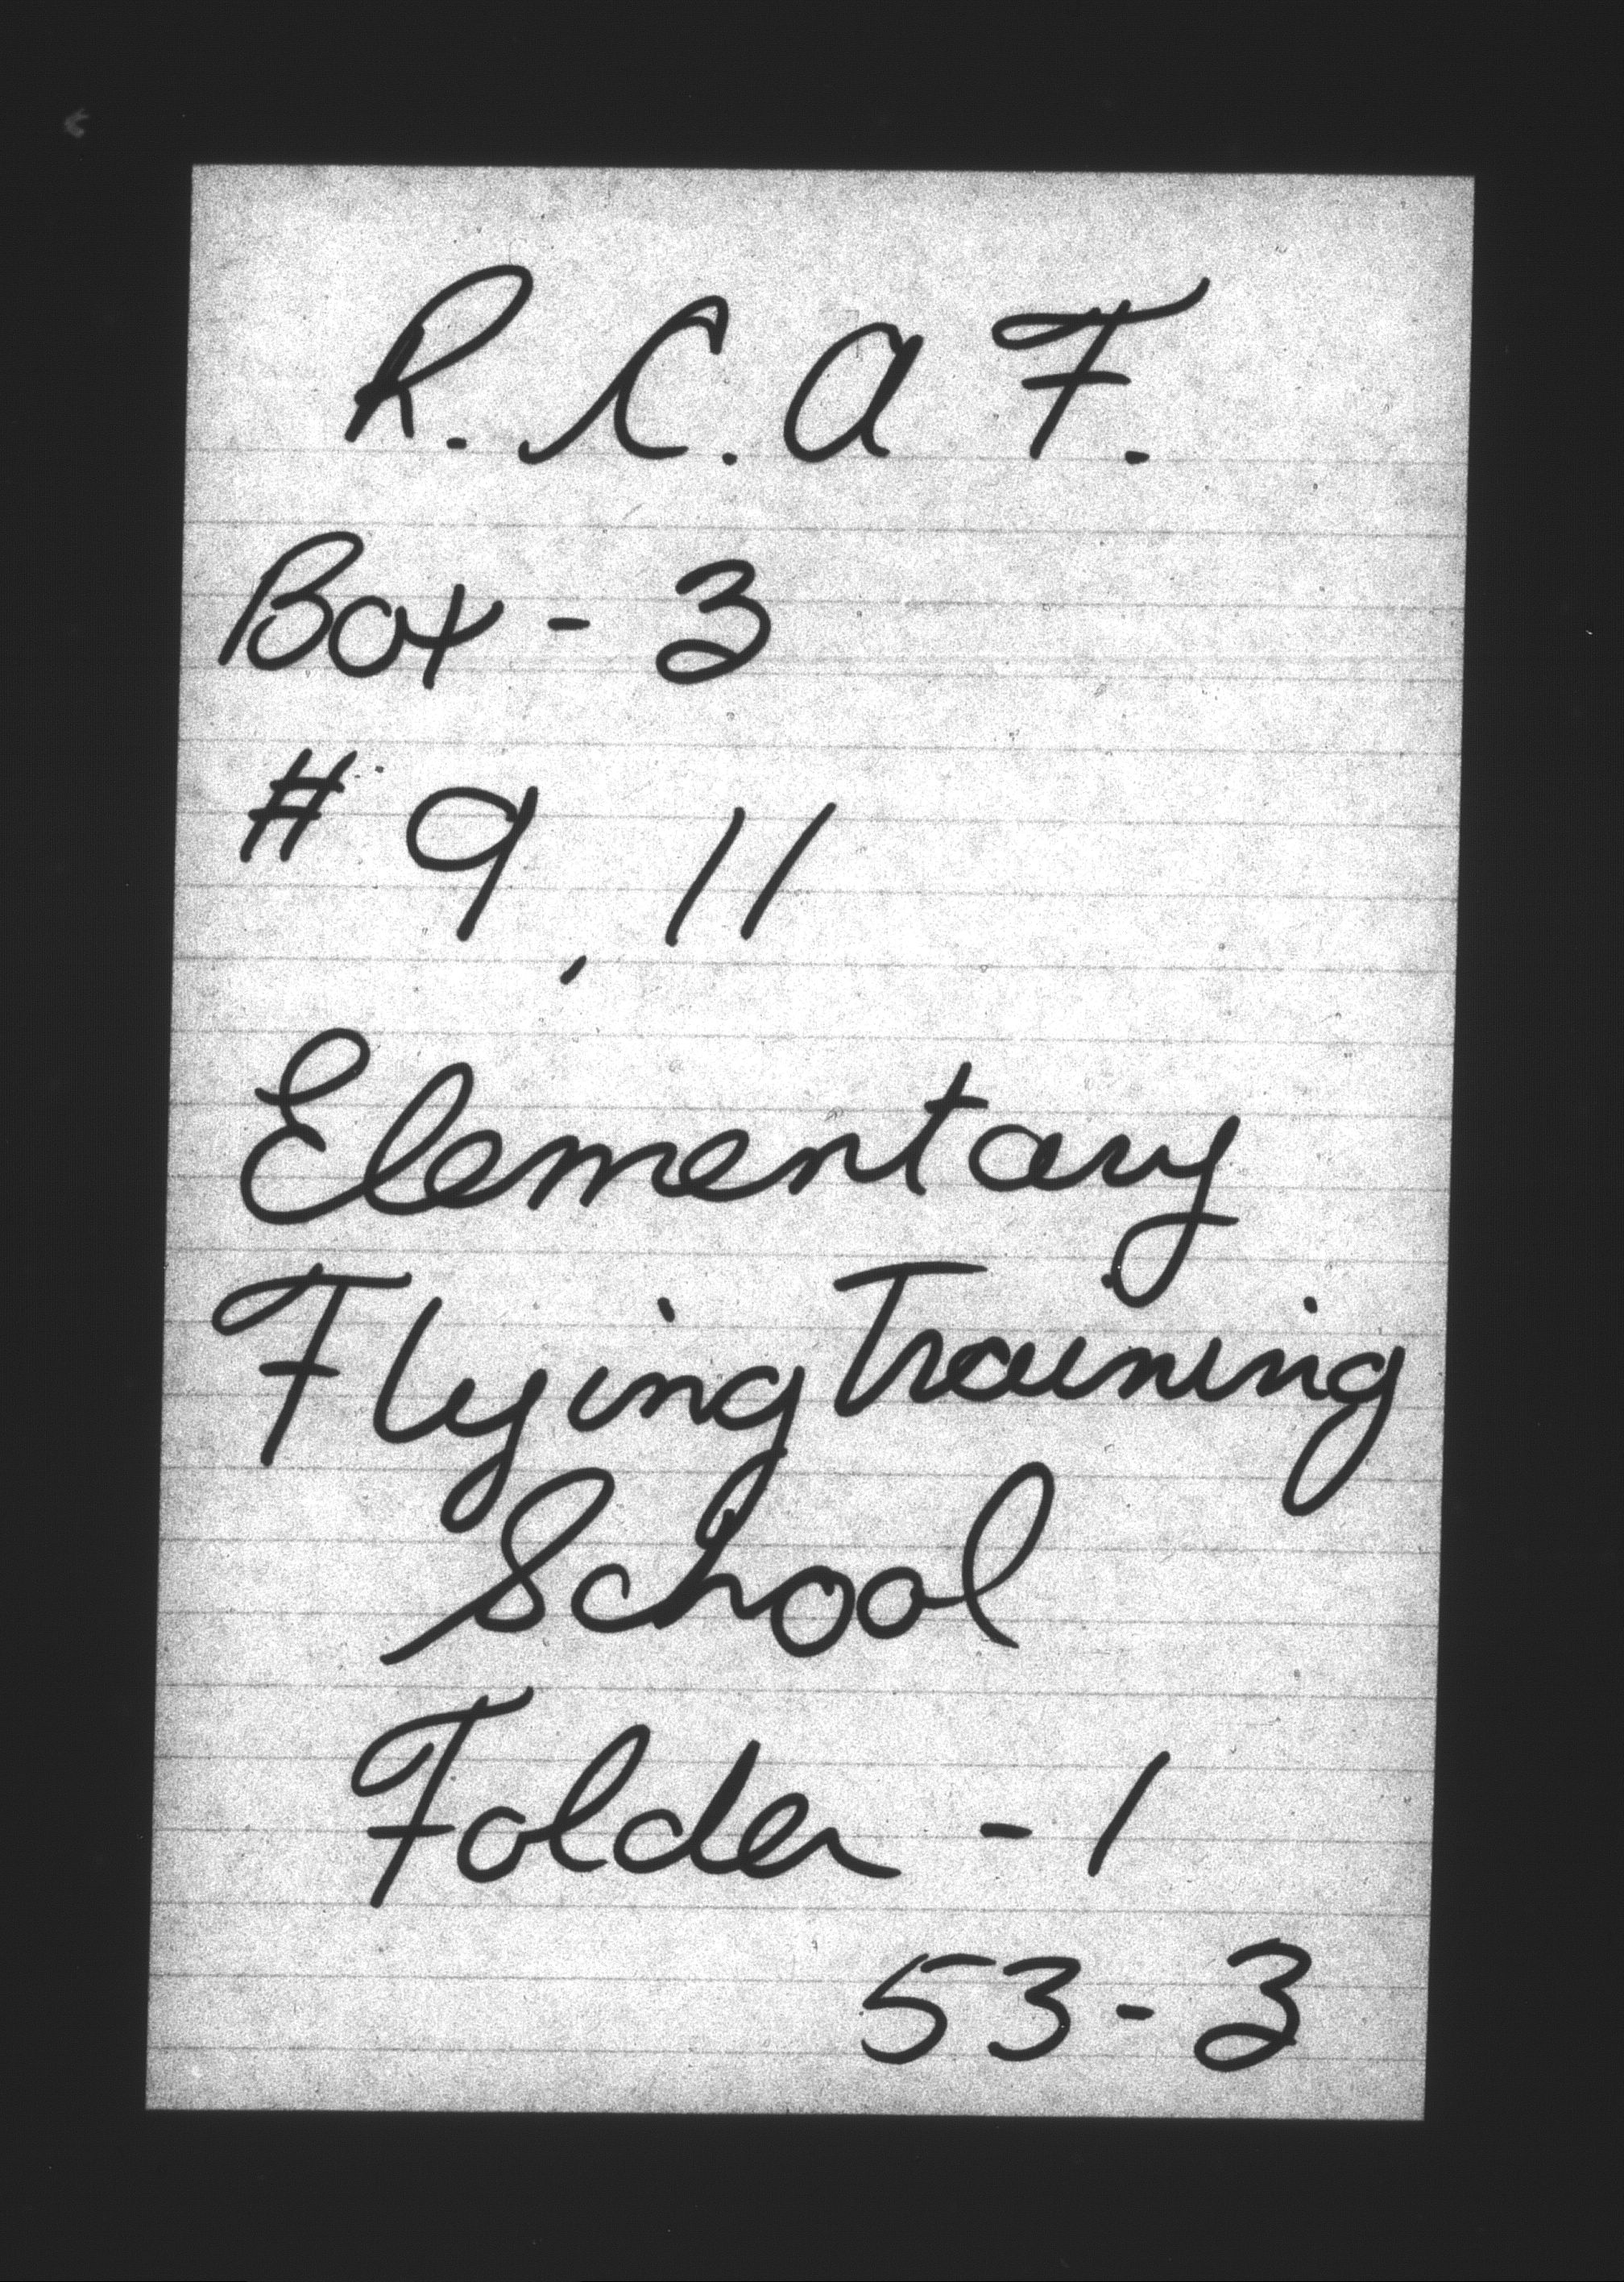 R. C. A F.
Box - 3
# 9, 11
Elementary
Flying Training
School
Folder - 1
53-3